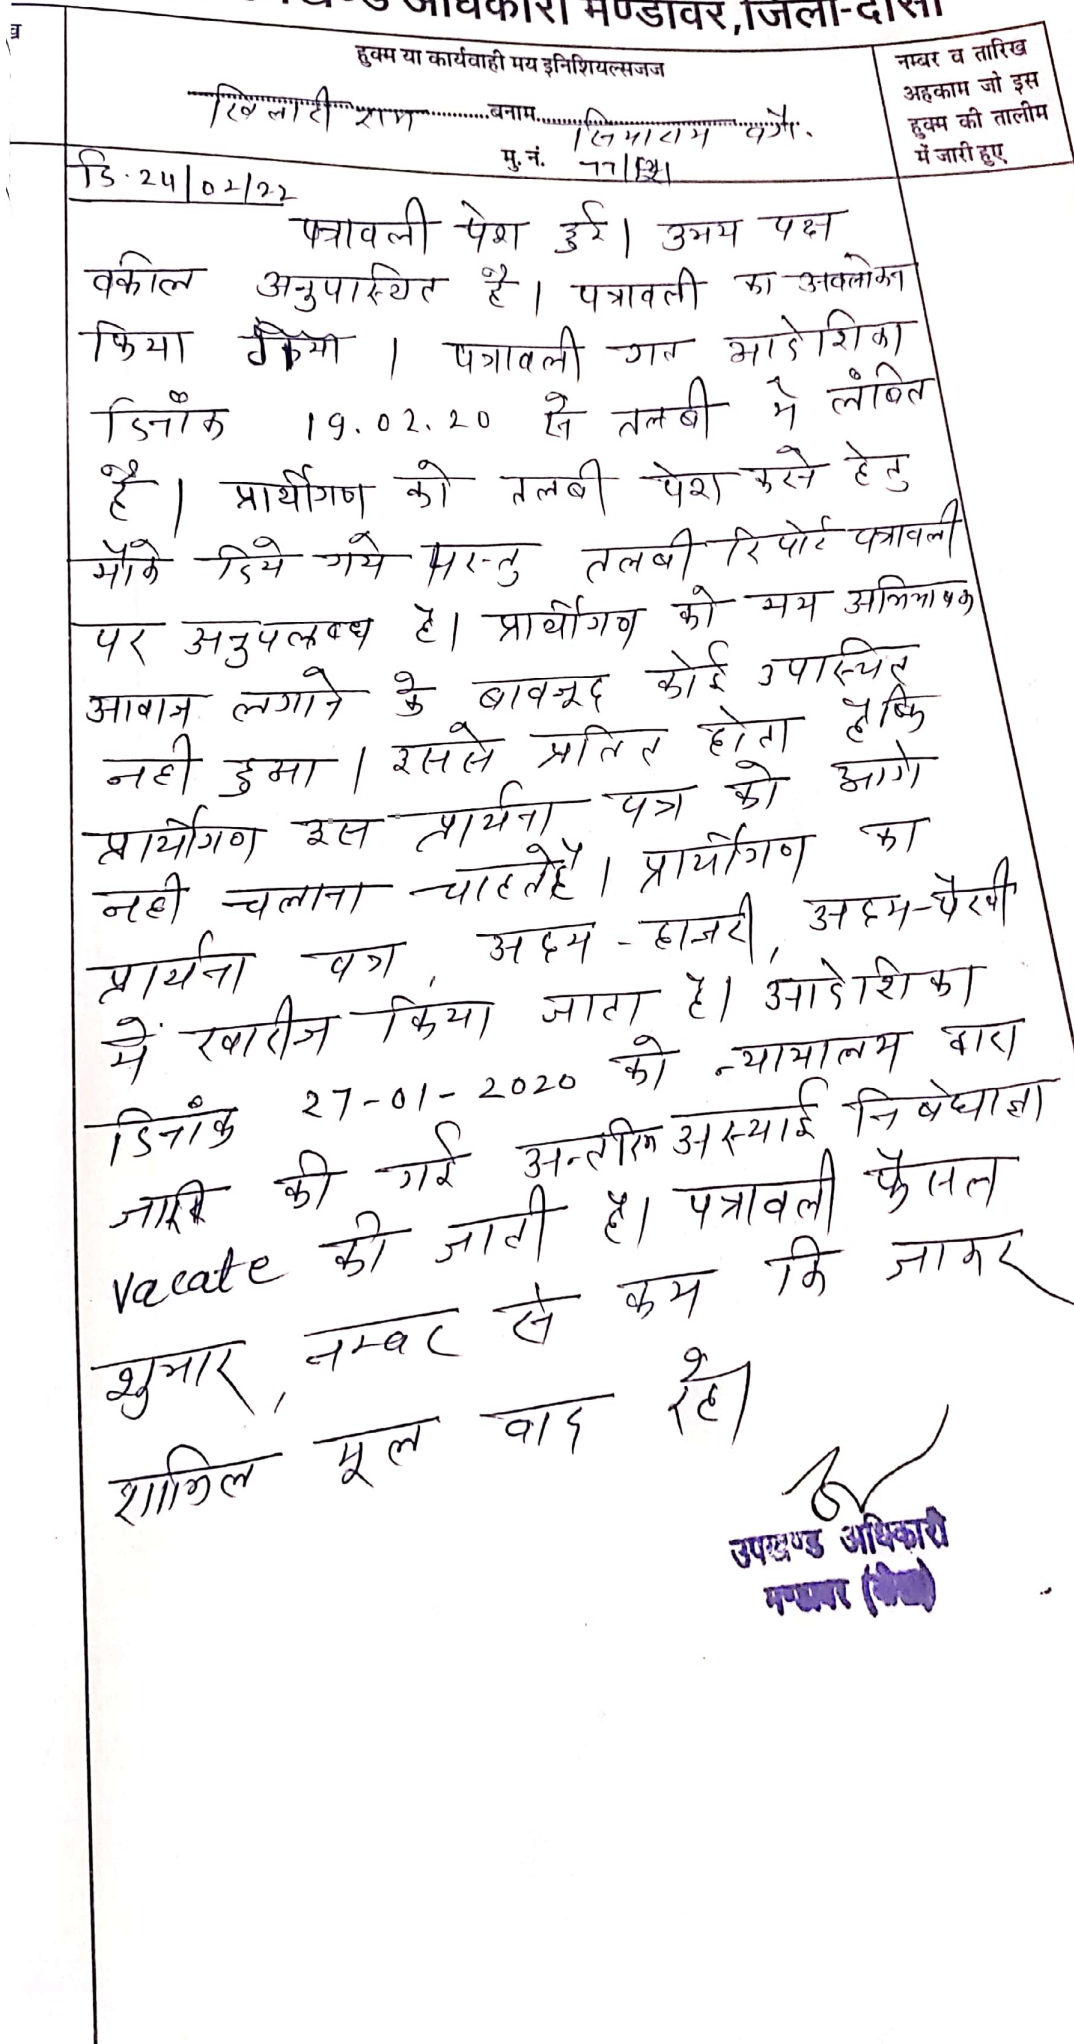 अधिकारी मण्डावर,जिला-दौसा
हुक्म या कार्यवाही मय इनिशियल्सजज
नम्बर व तारिख
अहकाम जो इस
हुक्म की तालीम
में जारी हुए
खिलाटी राम ...........बनाम........... सियाराम वगै.
मु.नं. 77/
दि. 24/02/22
पत्रावली पेश हुई। उभय पक्ष
वकील अनुपास्थित है। पत्रावली का अवलोकन
किया गया। पत्रावली गत आदेशिका
दिनांक 19.02.20 से तलबी में लंबित
है। प्रार्थीगण को तलबी पेश करने हेतु
मौके दिये गये परन्तु तलबी रिपोर्ट पत्रावली
पर अनुपलब्ध है। प्रार्थीगण को मय अभिभाषक
आवाज लगाने के बावजूद कोई उपास्थित
नही हुआ। इससे प्रतित होता है कि
प्रार्थीगण इस प्रार्थना पत्र को आगे
नही चलाना चाहते है। प्रार्थीगण का
प्रार्थना पत्र, अदम-हाजरी, अदम-पैरवी
में खारीज किया जाता है। आदेशिका
दिनांक 27-01-2020 को न्यायालय द्वारा
जारी की गई अन्तरिम अस्थाई निषेधाज्ञा
vacate की जाती है। पत्रावली फैसल
शुमार, नम्बर से कम कि जाकर
शामिल मूल वाद रहे।
उपखण्ड अधिकारी
मण्डावर (दौसा)